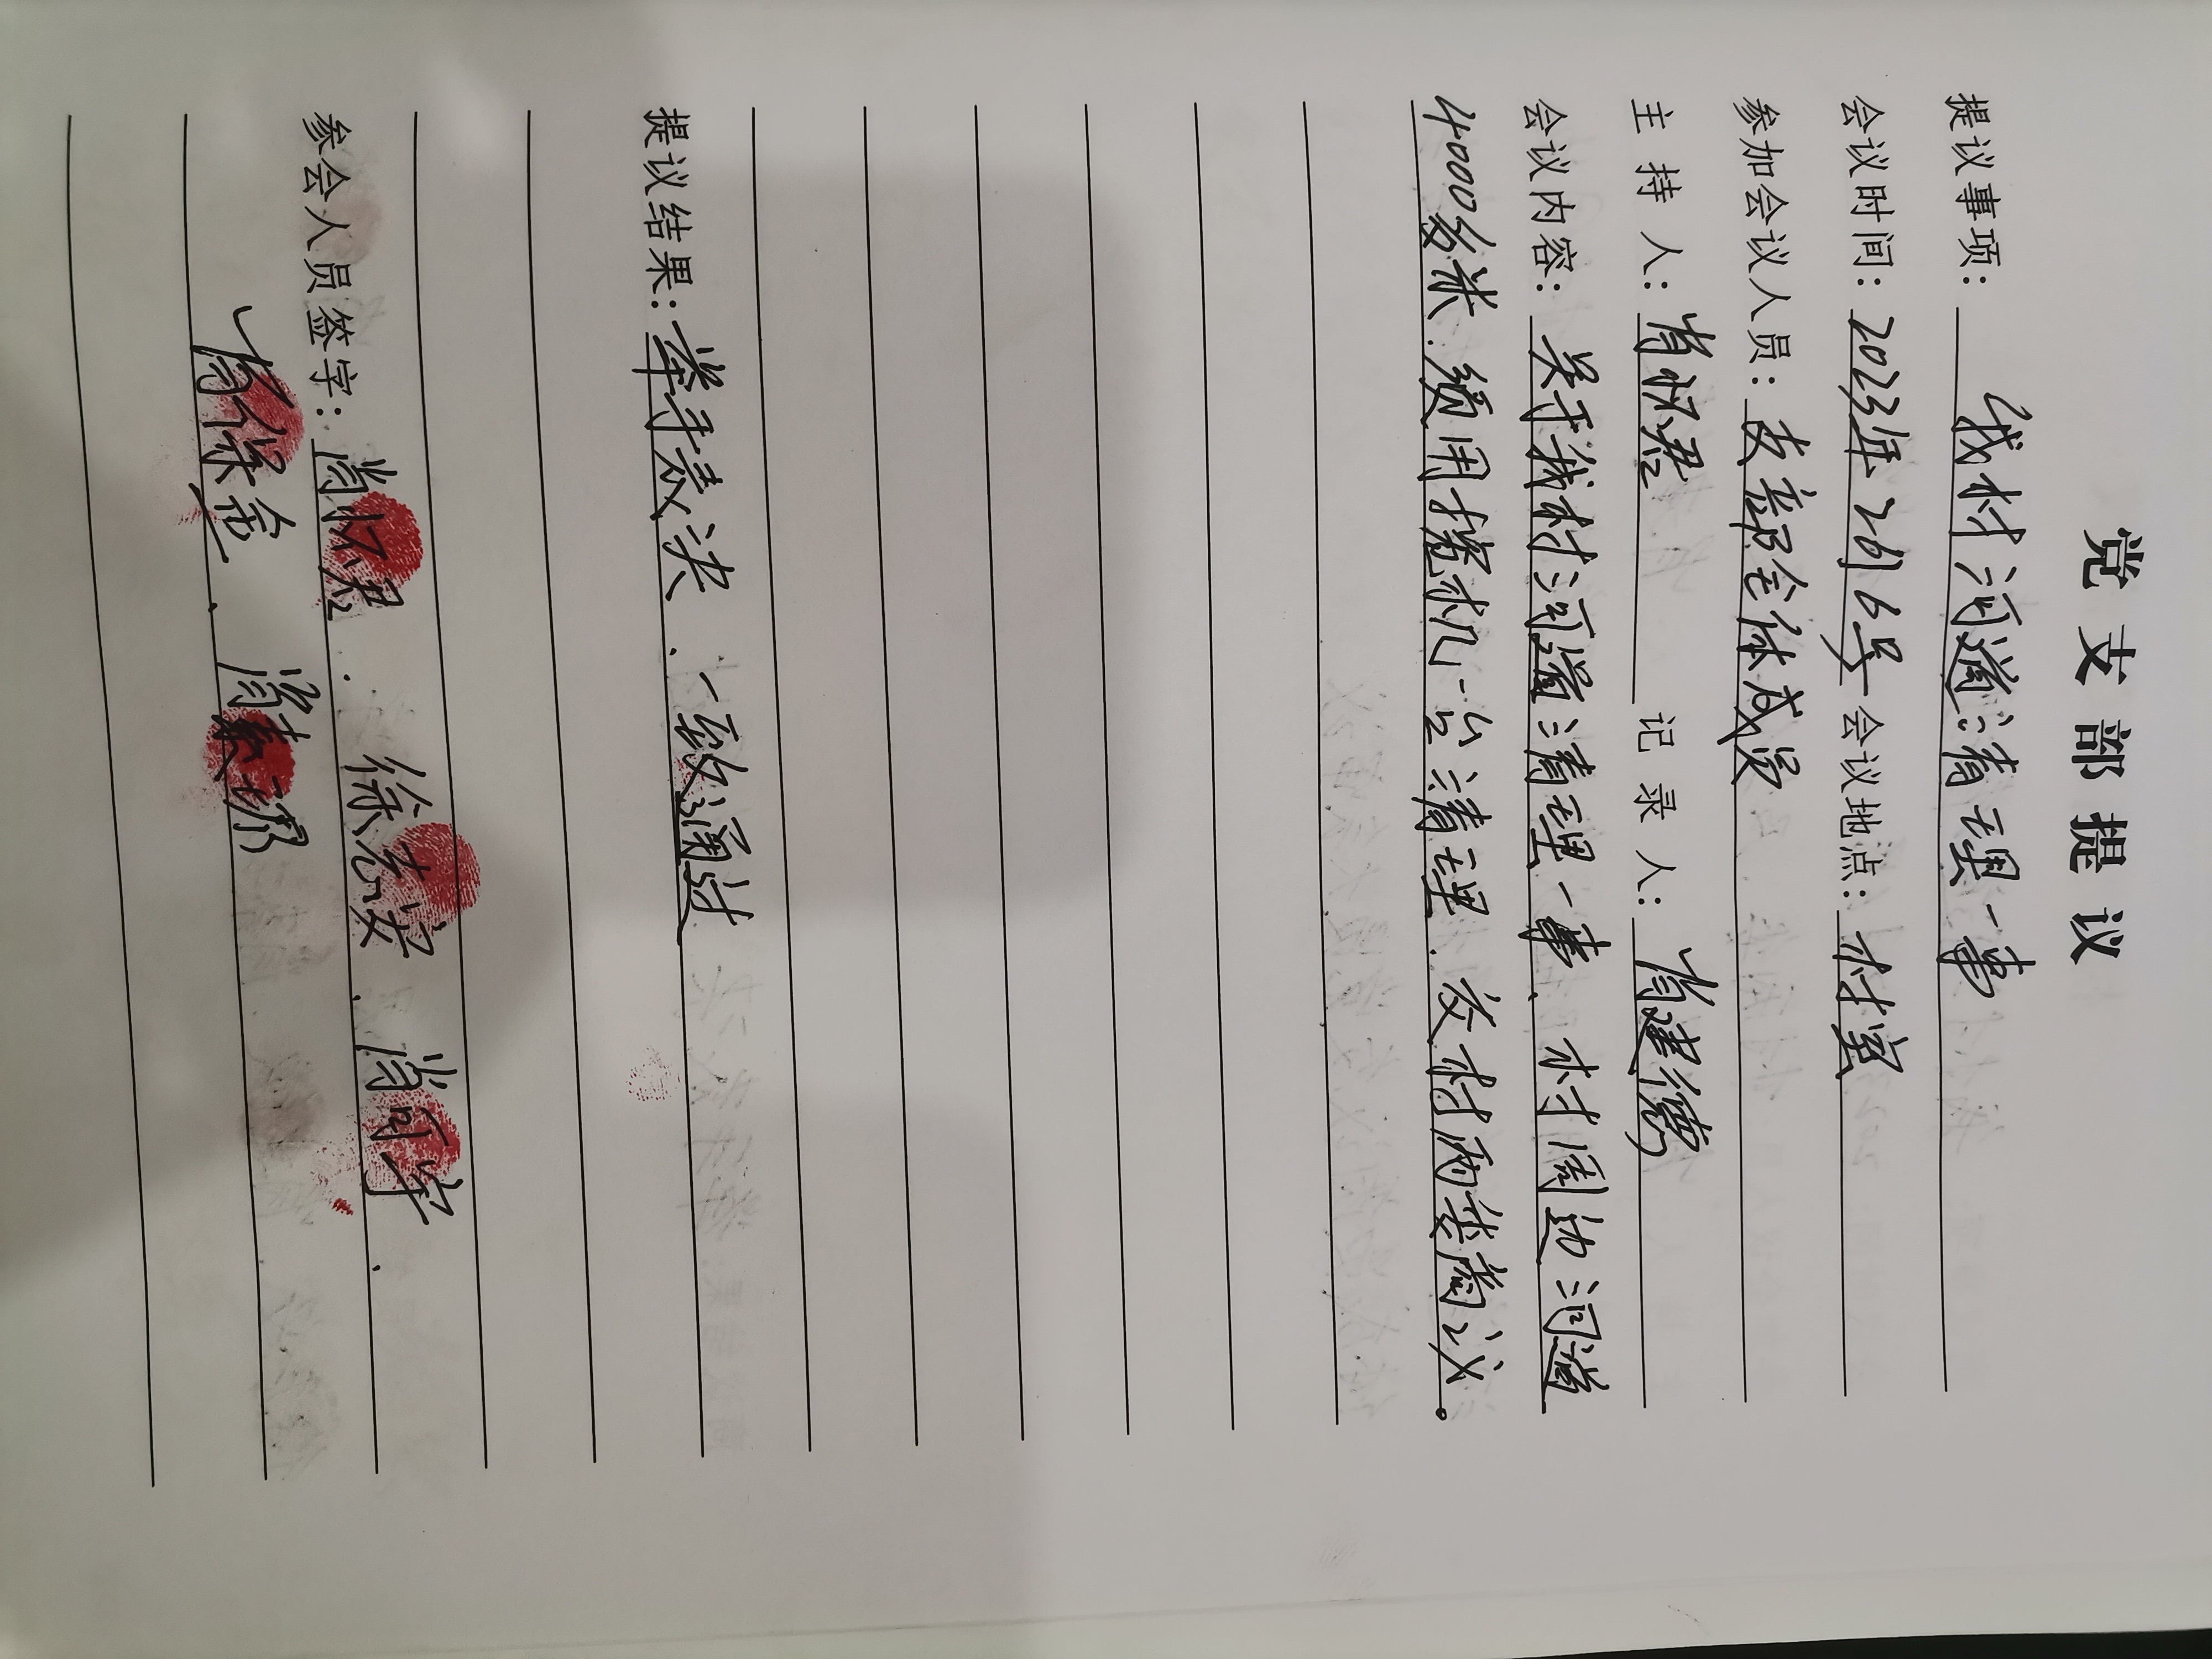 党支部提议
提议事项：我村河道清理一事
会议时间：2023年2月6号 会议地点：村室
参加会议人员：支部全体成员
主持人：肖怀君 记录人：肖建德
会议内容：关于我村河道清理一事、村周边河道
4000多米、须用挖机一台清理、交村两委商议。
提议结果：举手表决、一致通过
参会人员签字：肖怀君、徐志安、肖可宇、
肖保金、肖素